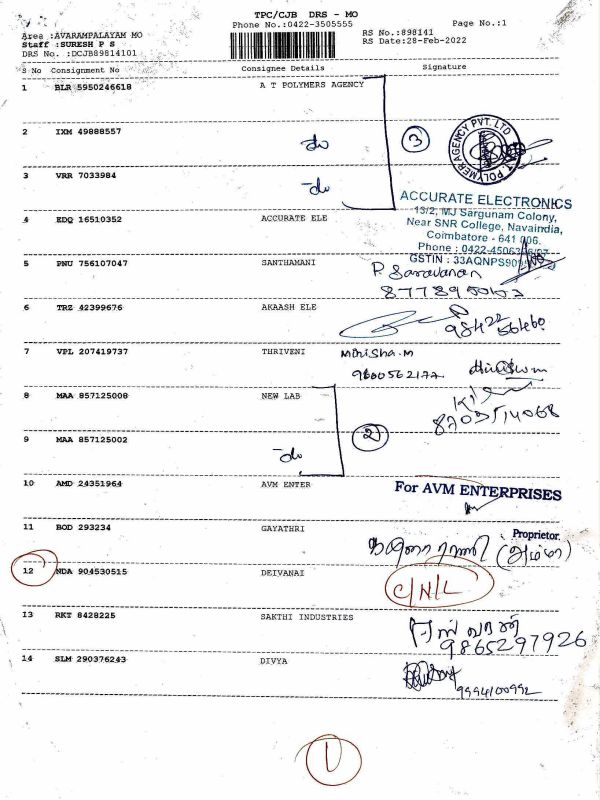 TPC/CJB DRS - MO
Phone No.:0422-3505555
Page No.:1
Area :AVARAMPALAYAM MO
Staff :SURESH P S
DRS No. :DCJB89814101
RS No.:898141
RS Date:28-Feb-2022
S No Consignment No Consignee Details Signature
1 BLR 5950246618 A T POLYMERS AGENCY
2 IXM 49888557 do
3
POLYMER AGENCY PVT. LTD
3 VRR 7033984 do
ACCURATE ELECTRONICS
13/2, MJ Sargunam Colony,
Near SNR College, Navaindia,
Coimbatore - 641 006.
4 EDQ 16510352 ACCURATE ELE
Phone : 0422-4506
GSTIN : 33AQNPS90
5 PNU 756107047 SANTHAMANI
P. Saravanan
6 TRZ 42399676 AKAASH ELE
7 VPL 207419737 THRIVENI
9600562177
8 MAA 857125008 NEW LAB
2
9 MAA 857125002 do
10 AMD 24351964 AVM ENTER
For AVM ENTERPRISES
Proprietor.
11 BOD 293234 GAYATHRI
(அம்மா)
12 NDA 904530515 DEIVANAI C/N/L
13 RKT 8428225 SAKTHI INDUSTRIES
9865297926
14 SLM 290376243 DIVYA
9994100992
1